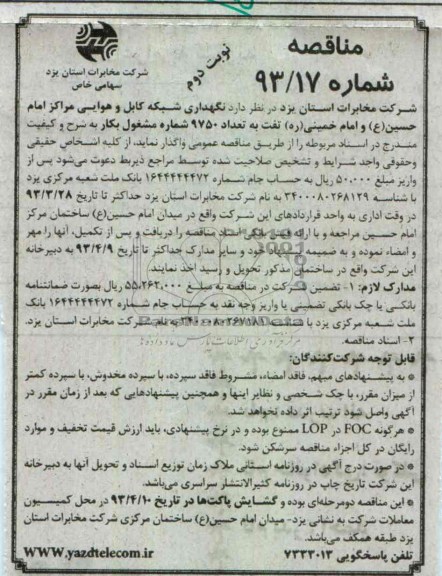 مناقصه
شماره ۹۳/۱۷
نوبت دوم
شرکت مخابرات استان یزد
سهامی خاص
شرکت مخابرات استان یزد در نظر دارد نگهداری شبکه کابل و هوایی مراکز امام
حسین(ع) و امام خمینی(ره) تفت به تعداد ۹۷۵۰ شماره مشغول بکار به شرح و کیفیت
مندرج در اسناد مربوطه را از طریق مناقصه عمومی واگذار نماید، از کلیه اشخاص حقیقی
وحقوقی واجد شرایط و تشخیص صلاحیت شده توسط مراجع ذیربط دعوت می‌شود پس از
واریز مبلغ ۵۰.۰۰۰ ریال به حساب جام شماره ۱۶۴۴۴۴۴۴۷۲ بانک ملت شعبه مرکزی یزد
با شناسه ۳۴۰۰۰۸۰۲۶۸۱۲۹ به نام شرکت مخابرات استان یزد حداکثر تا تاریخ ۹۳/۳/۲۸
در وقت اداری به واحد قراردادهای این شرکت واقع در میدان امام حسین(ع) ساختمان مرکز
امام حسین مراجعه و با ارائه فیش بانکی اسناد مناقصه را دریافت و پس از تکمیل، آنها را مهر
و امضاء نموده و به ضمیمه پیشنهاد خود و سایر مدارک حداکثر تا تاریخ ۹۳/۴/۹ به دبیرخانه
این شرکت واقع در ساختمان مذکور تحویل و رسید اخذ نمایند.
مدارک لازم: ۱- تضمین شرکت در مناقصه به مبلغ ۵۵،۲۶۲،۰۰۰ ریال بصورت ضمانتنامه
بانکی یا چک بانکی تضمینی یا واریز وجه نقد به حساب جام شماره ۱۶۴۴۴۴۴۴۷۲ بانک
ملت شعبه مرکزی یزد با به نام شرکت مخابرات استان یزد.
۲- اسناد مناقصه.
قابل توجه شرکت‌کنندگان:
* به پیشنهادهای مبهم، فاقد امضاء، مشروط فاقد سپرده، با سپرده مخدوش، یا سپرده کمتر
از میزان مقرر، با چک شخصی و نظایر اینها و همچنین پیشنهادهایی که بعد از زمان مقرر در
آگهی واصل شود ترتیب اثر داده نخواهد شد.
* هرگونه FOC در LOP ممنوع بوده و در نرخ پیشنهادی، باید ارزش قیمت تخفیف و موارد
رایگان در کل اجزاء مناقصه سرشکن شود.
* در صورت درج آگهی در روزنامه استانی ملاک زمان توزیع اسناد و تحویل آنها به دبیرخانه
این شرکت تاریخ چاپ در روزنامه کثیرالانتشار سراسری می‌باشد.
* این مناقصه دومرحله‌ای بوده و گشایش پاکت‌ها در تاریخ ۹۳/۴/۱۰ در محل کمیسیون
معاملات شرکت به نشانی یزد- میدان امام حسین(ع) ساختمان مرکزی شرکت مخابرات استان
یزد طبقه همکف می‌باشد.
تلفن پاسخگویی ۷۲۳۳۰۱۳
WWW.yazdtelecom.ir